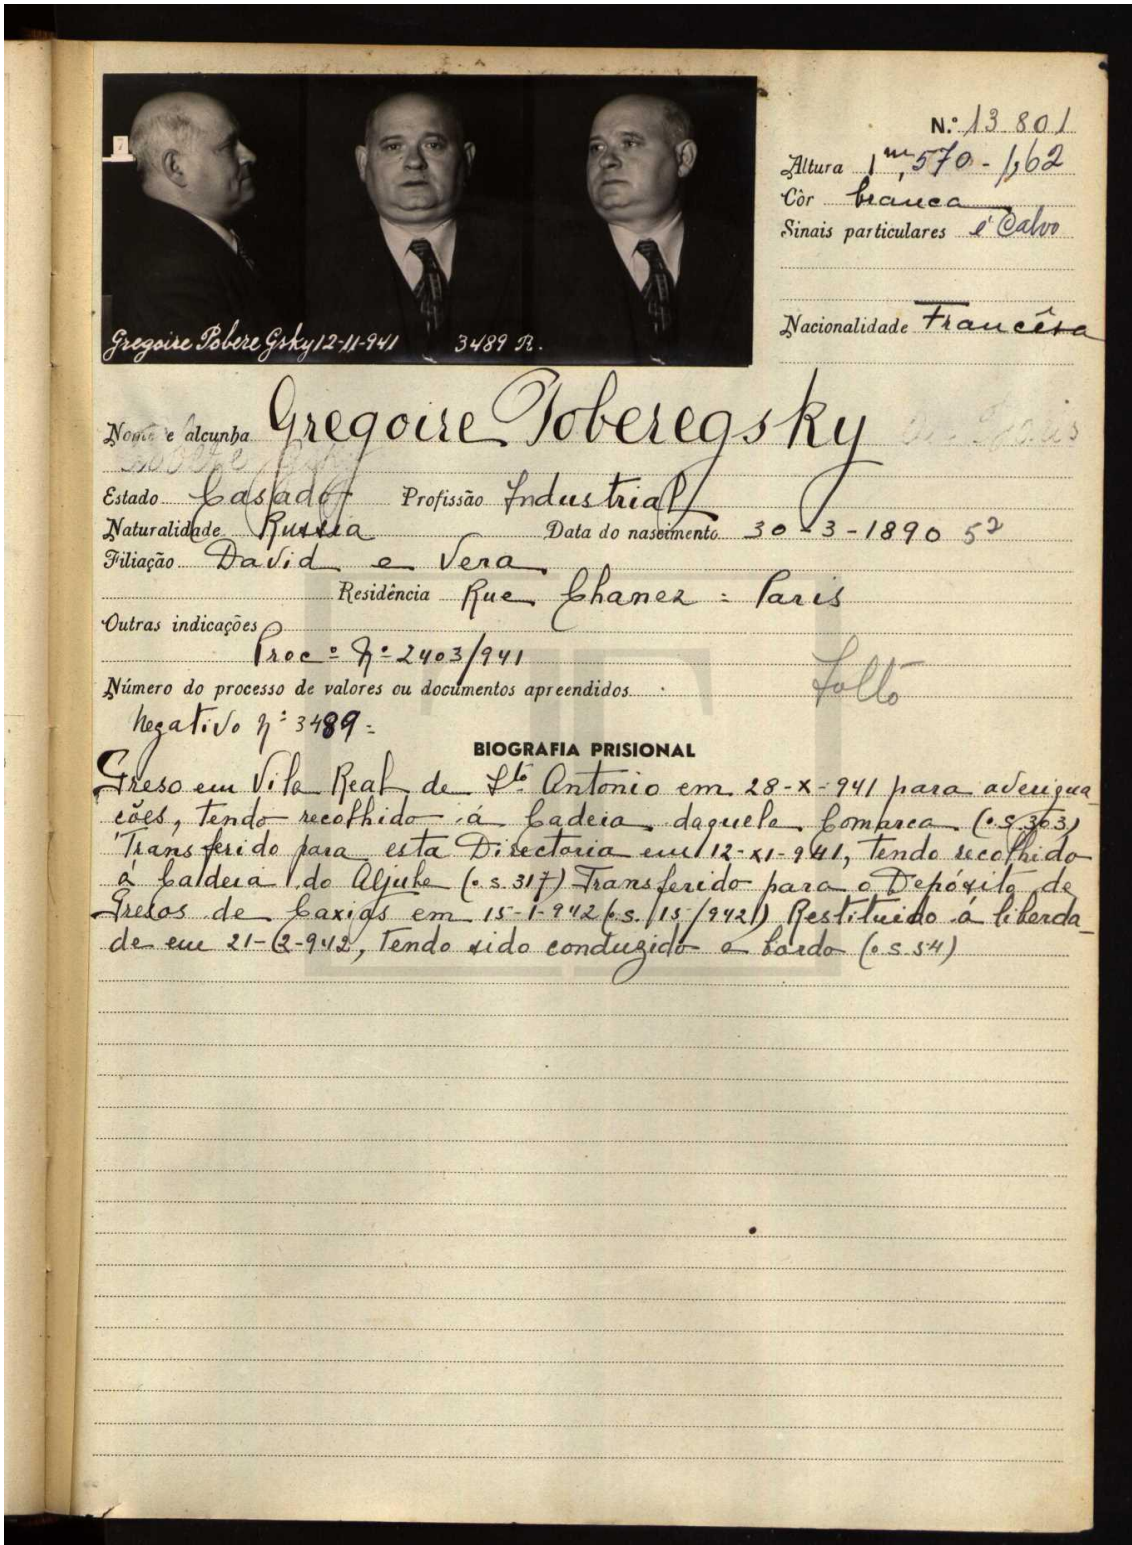 7
Gregoire Pobere Gsky 12-11-941 3489 R.
N.º 13.801
Altura 1m,570 - 1,62
Côr branca
Sinais particulares é Calvo
Nacionalidade Francêsa
Nome e alcunha Gregoire Poberegsky
Estado Casado Profissão Industrial
Naturalidade Russia Data do nascimento 30-3-1890
Filiação David e Vera
Residência Rue Chanez = Paris
Outras indicações
Procº Nº 2403/941
Número do processo de valores ou documentos apreendidos
Negativo Nº 3489=
Solto
BIOGRAFIA PRISIONAL
Preso em Vila Real de Stº Antonio em 28-X-941 para averigua-
cões, tendo recolhido á Cadeia daquela Comarca (o.s.303)
Transferido para esta Directoria em 12-XI-941, tendo recolhido
á Caldeia do Aljube (o.s.317) Transferido para o Depósito de
Presos de Caxias em 15-1-942 (o.s./15/942) Restituido á liberda-
de em 21-2-942, tendo sido conduzido a bordo (o.s.54)